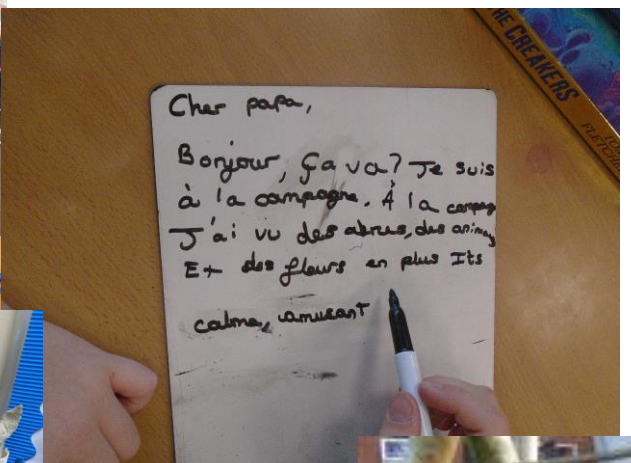 Cher papa,
Bonjour, Ça va? Je suis
à la campagne. À la campag
J'ai vu des abres, des animay
Et des fleurs en plus Its
calme, amusant
THE CREAKERS
TOM
FLETCHER